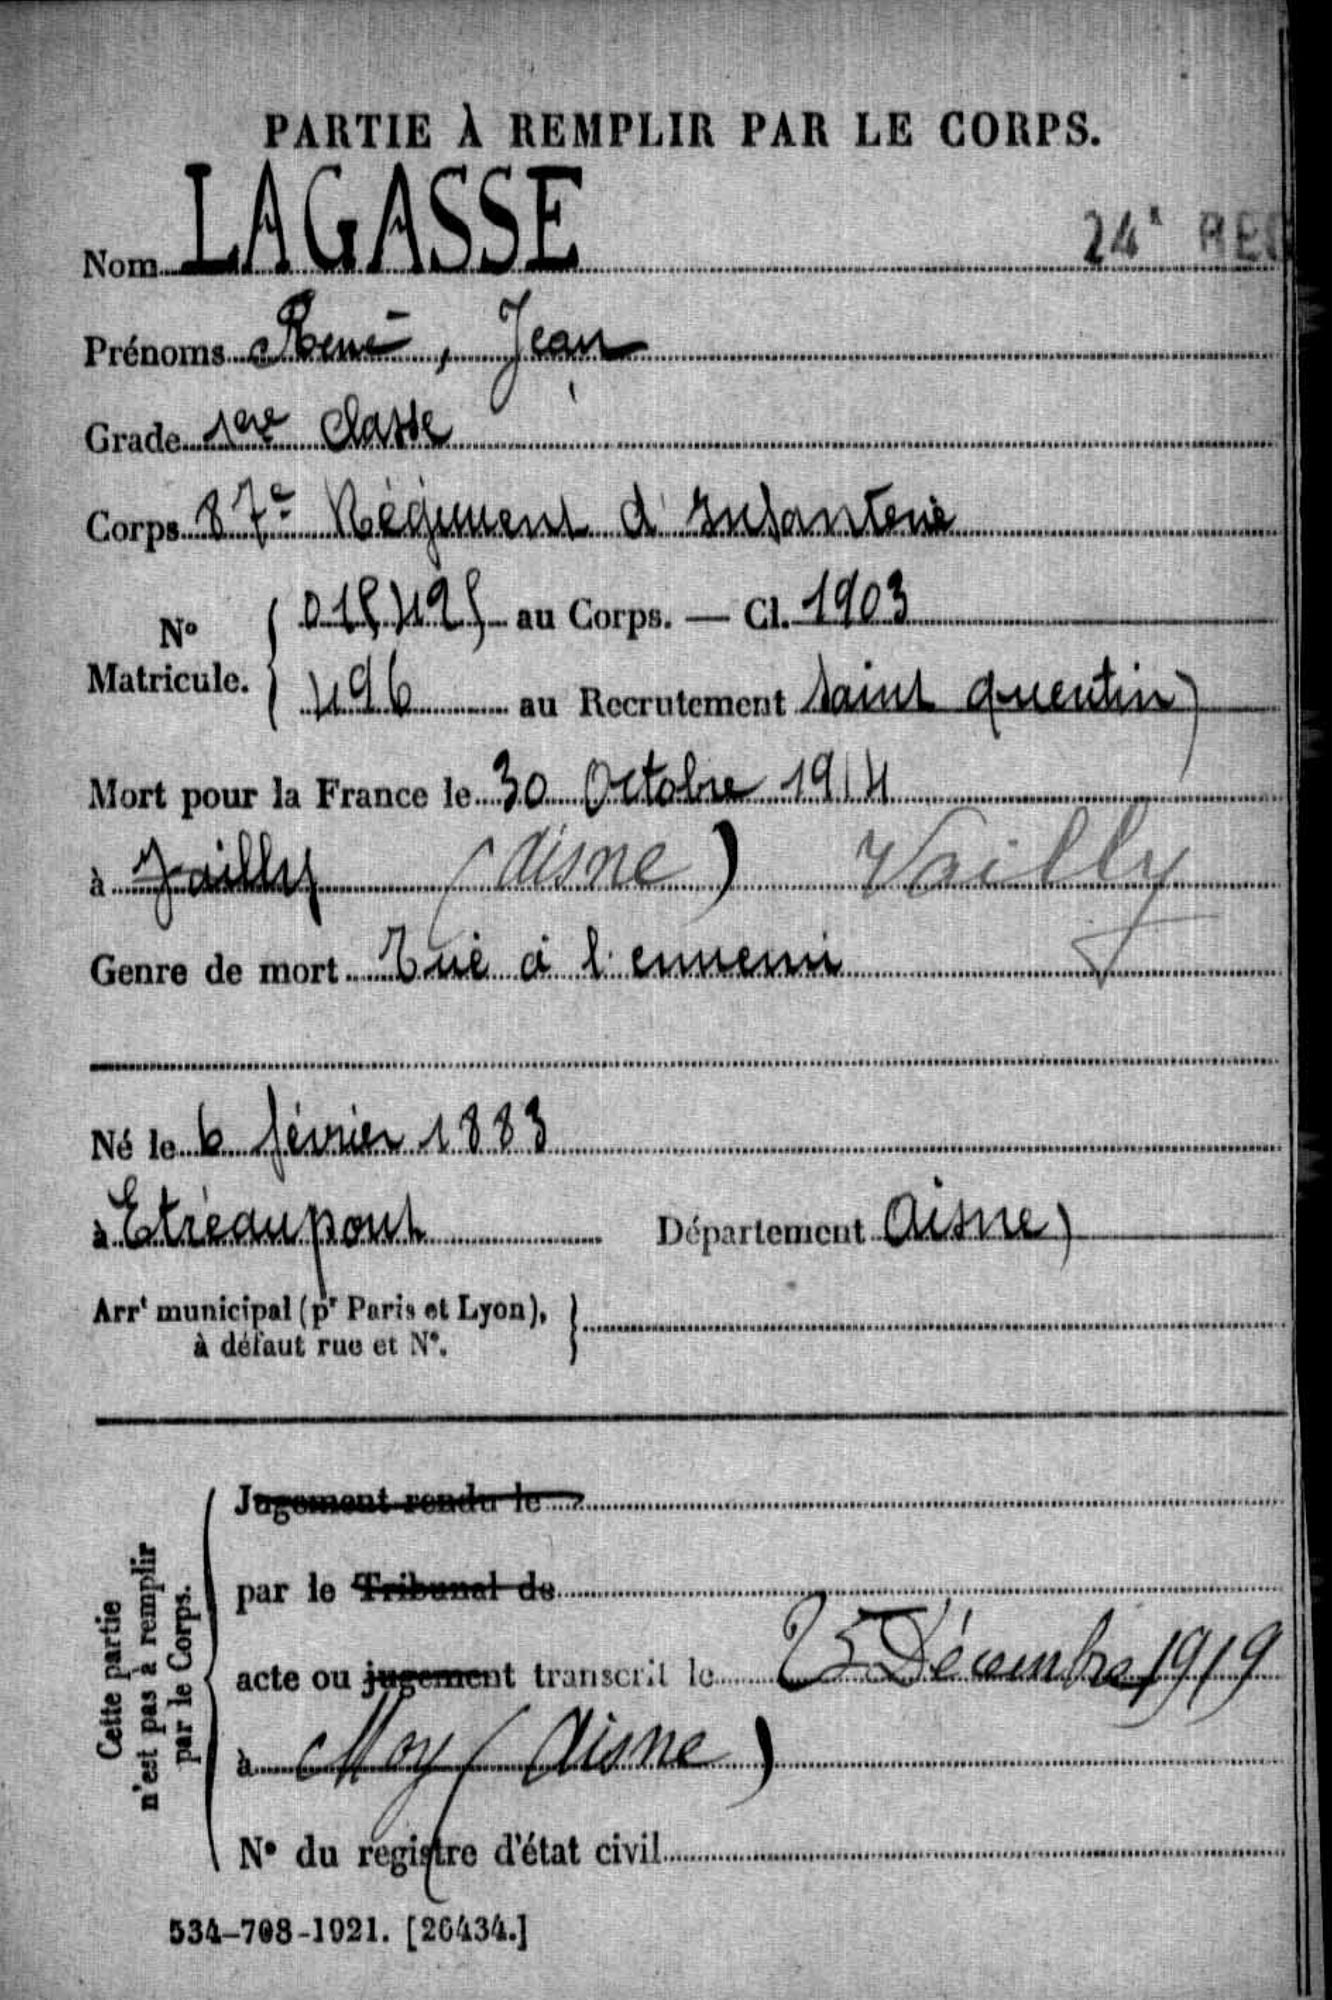 PARTIE À REMPLIR PAR LE CORPS.
Nom LAGASSE
24e REG
Prénoms René, Jean
Grade 1ere classe
Corps 87e Régiment d'Infanterie
No Matricule. { 015425 au Corps. — Cl. 1903
496 au Recrutement Saint quentin
Mort pour la France le 30 Octobre 1914
à Jailly (Aisne) Vailly
Genre de mort Tué à l'ennemi
Né le 6 février 1883
à Etréaupont Département Aisne)
Arrt municipal (pr Paris et Lyon), }
à défaut rue et No.
Cette partie
n'est pas à remplir
par le Corps.
Jugement rendu le
par le Tribunal de
acte ou jugement transcrit le 25 Décembre 1919
à Moy (Aisne)
No du registre d'état civil
534-708-1921. [26434.]